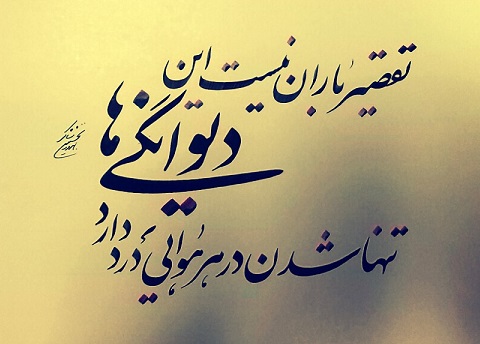 تقصیر باران نیست این
دیوانگی‌ها
تنها شدن در هر هوائی درد دارد